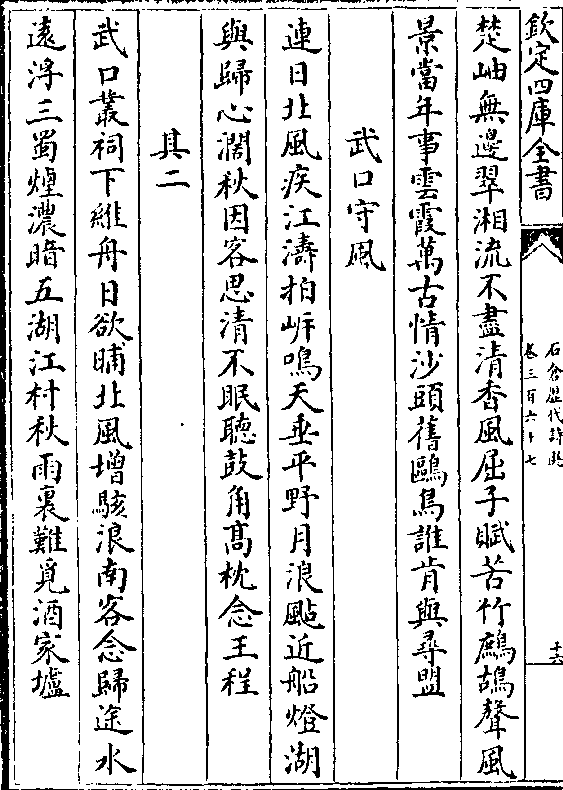 欽定四庫全書
石倉歷代詩選
卷三百六十七
十六
楚岫無邊翠湘流不盡清香風屈子賦苦竹鷓鴣聲風
景當年事雲霞萬古情沙頭舊鷗鳥誰肯與尋盟
武口守風
連日北風疾江濤拍岸鳴天垂平野月浪颭近船燈湖
與歸心濶秋因客思清不眠聽鼓角髙枕念王程
其二
武口叢祠下維舟日欲晡北風增駭浪南客念歸途水
遠浮三蜀煙濃暗五湖江村秋雨裏難覓酒家壚